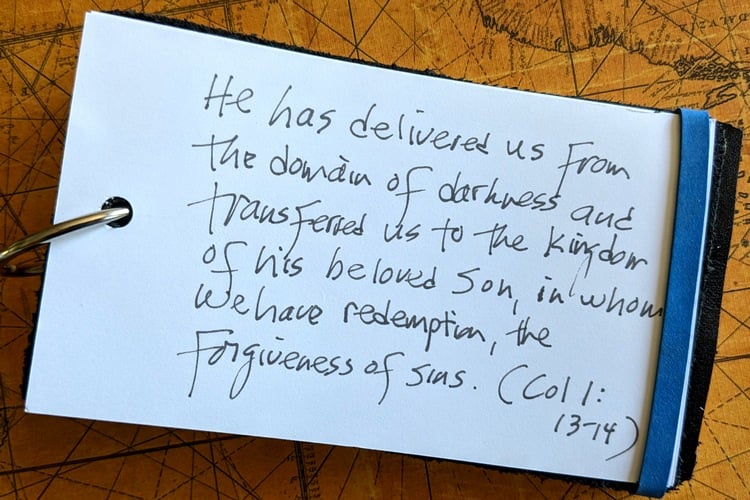 He has delivered us from
the domain of darkness and
transferred us to the kingdom
of his beloved Son, in whom
we have redemption, the
forgiveness of sins. (Col 1:
13-14)